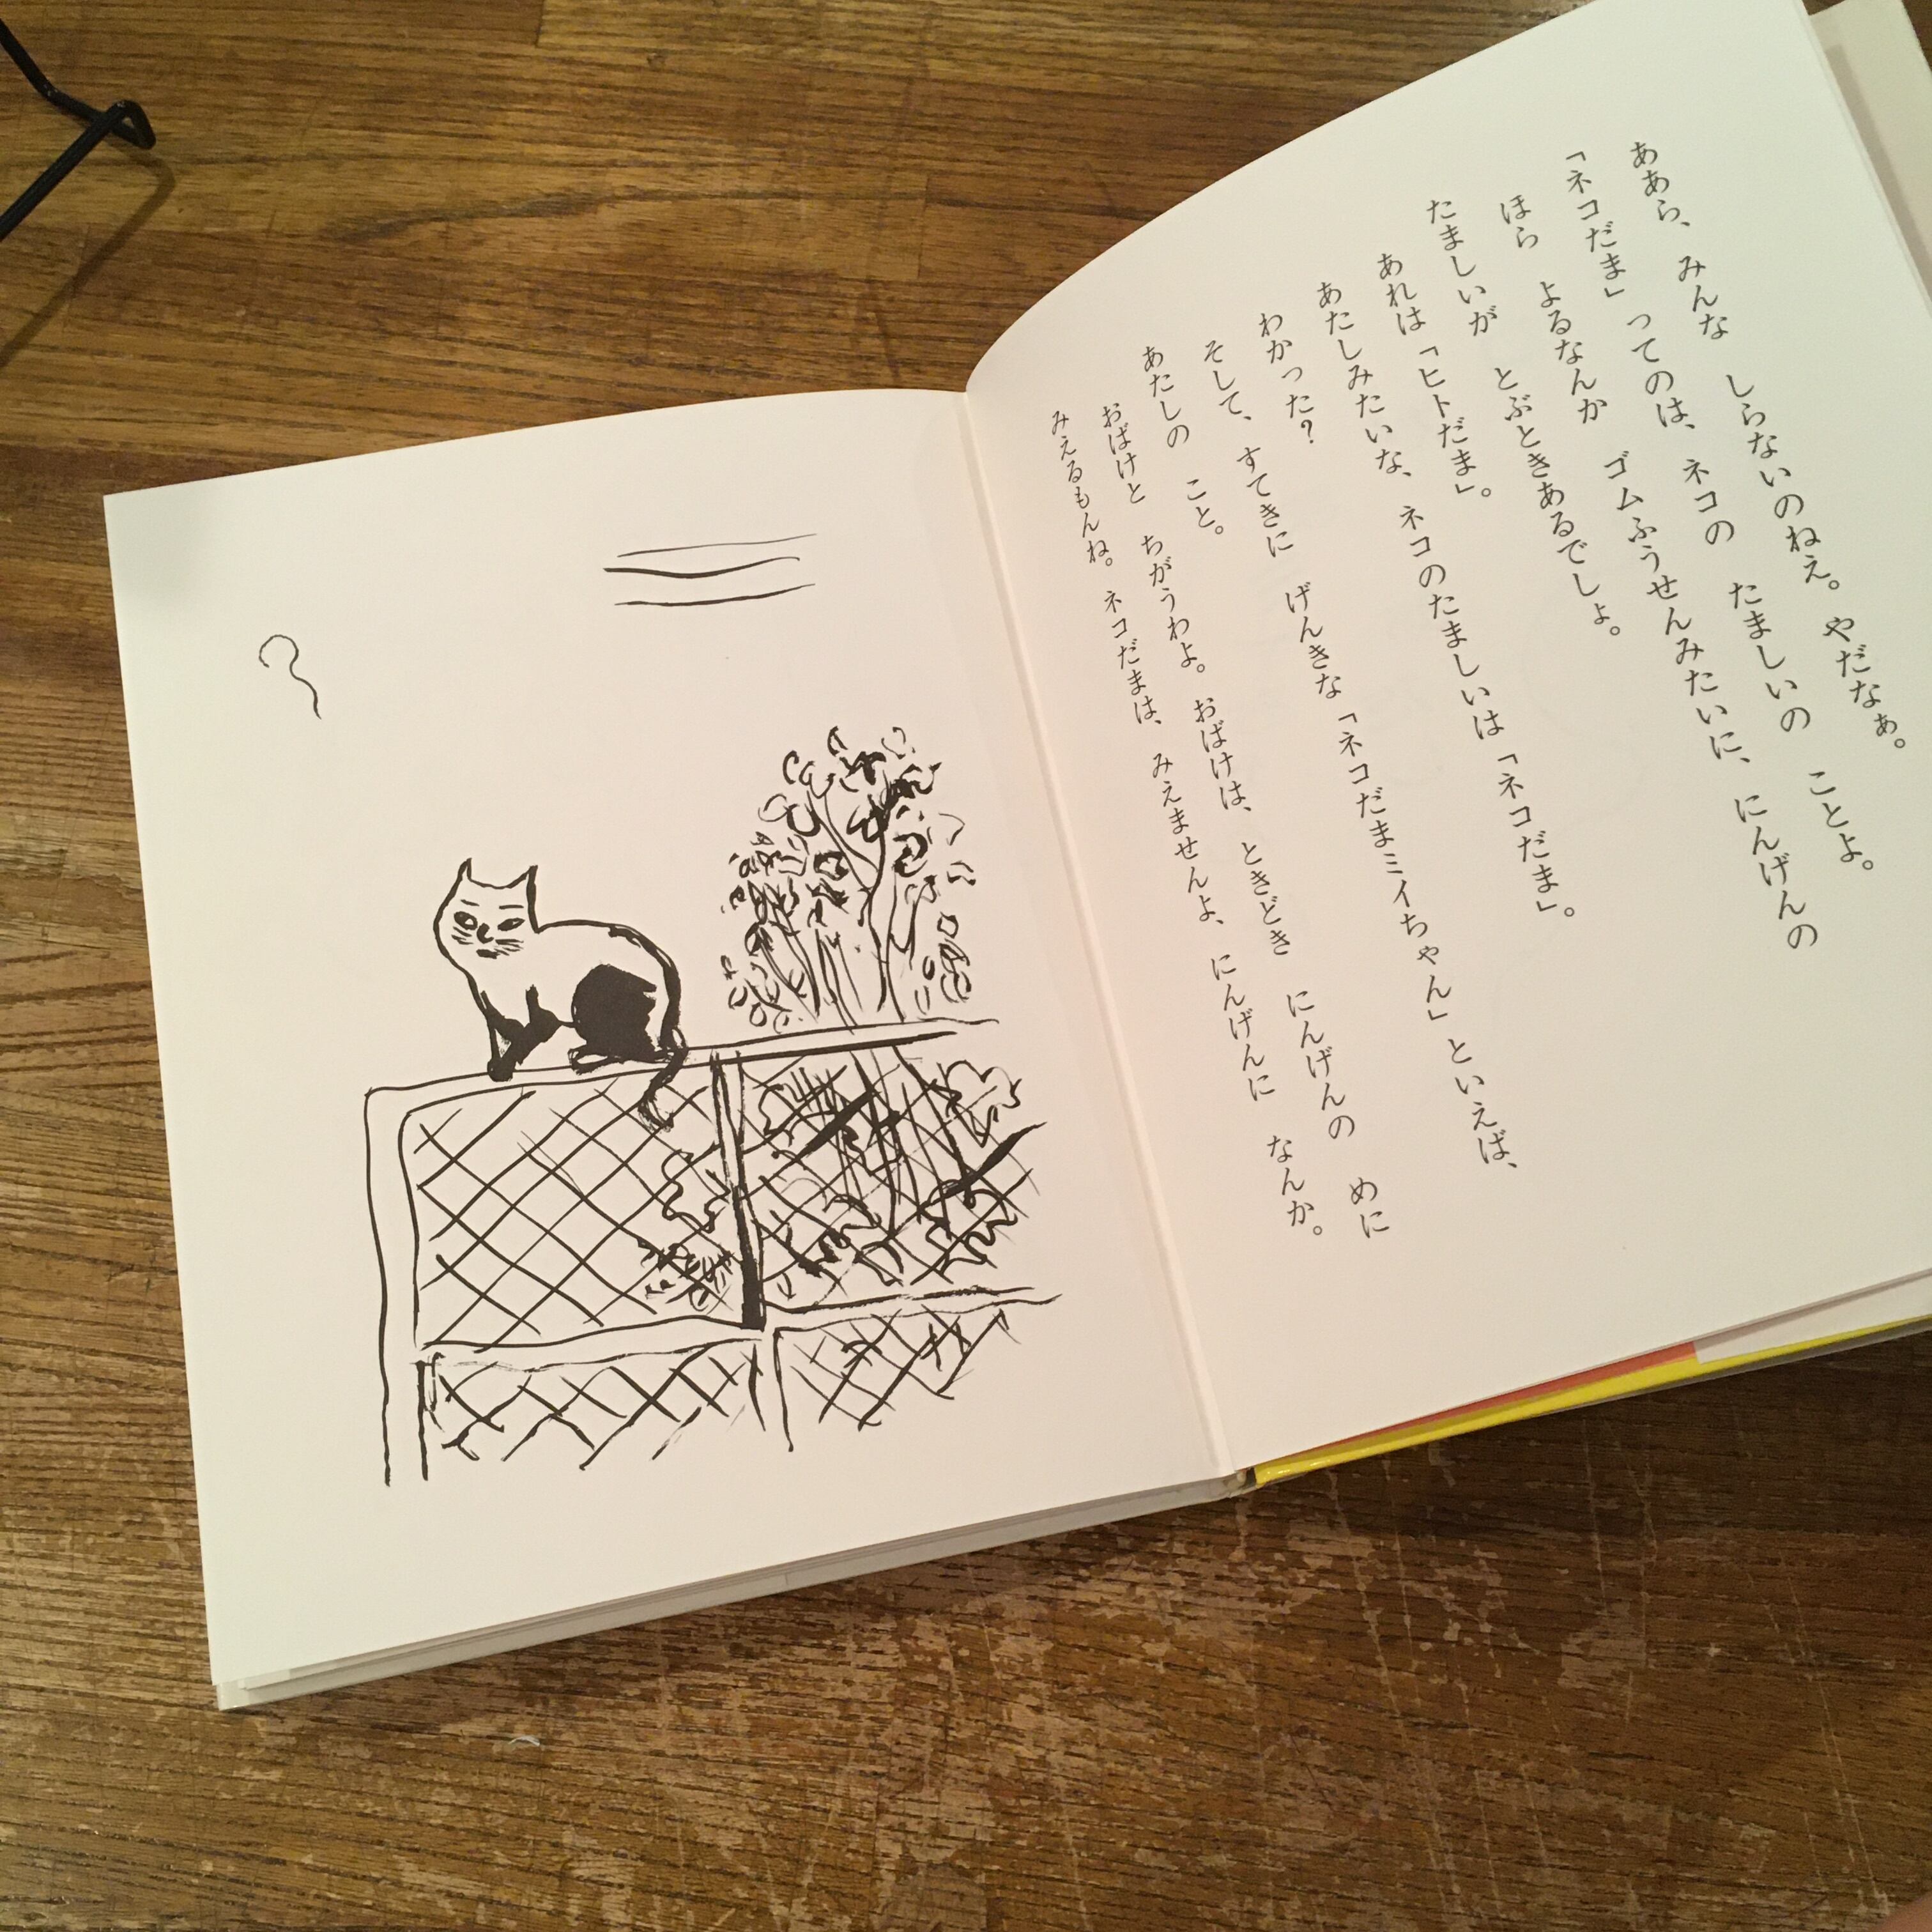 ああら、みんな　しらないのねえ。やだなぁ。
「ネコだま」ってのは、ネコの　たましいの　ことよ。
ほら　よるなんか　ゴムふうせんみたいに、にんげんの
たましいが　とぶときあるでしょ。
あれは「ヒトだま」。
あたしみたいな、ネコのたましいは「ネコだま」。
わかった？
そして、すてきに　げんきな「ネコだまミイちゃん」といえば、
あたしの　こと。
おばけと　ちがうわよ。おばけは、ときどき　にんげんの　めに
みえるもんね。ネコだまは、みえませんよ、にんげんに　なんか。